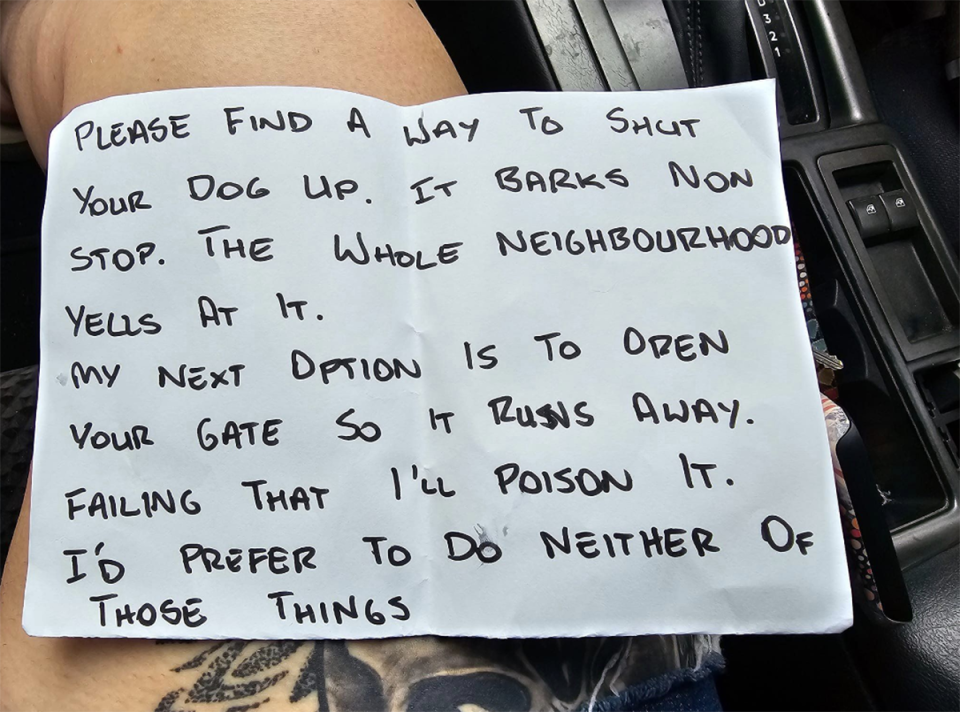 PLEASE FIND A WAY TO SHUT
YOUR DOG UP. IT BARKS NON
STOP. THE WHOLE NEIGHBOURHOOD
YELLS AT IT.
MY NEXT OPTION IS TO OPEN
YOUR GATE SO IT RUNS AWAY.
FAILING THAT I'LL POISON IT.
I'D PREFER TO DO NEITHER OF
THOSE THINGS
D
3
2
1